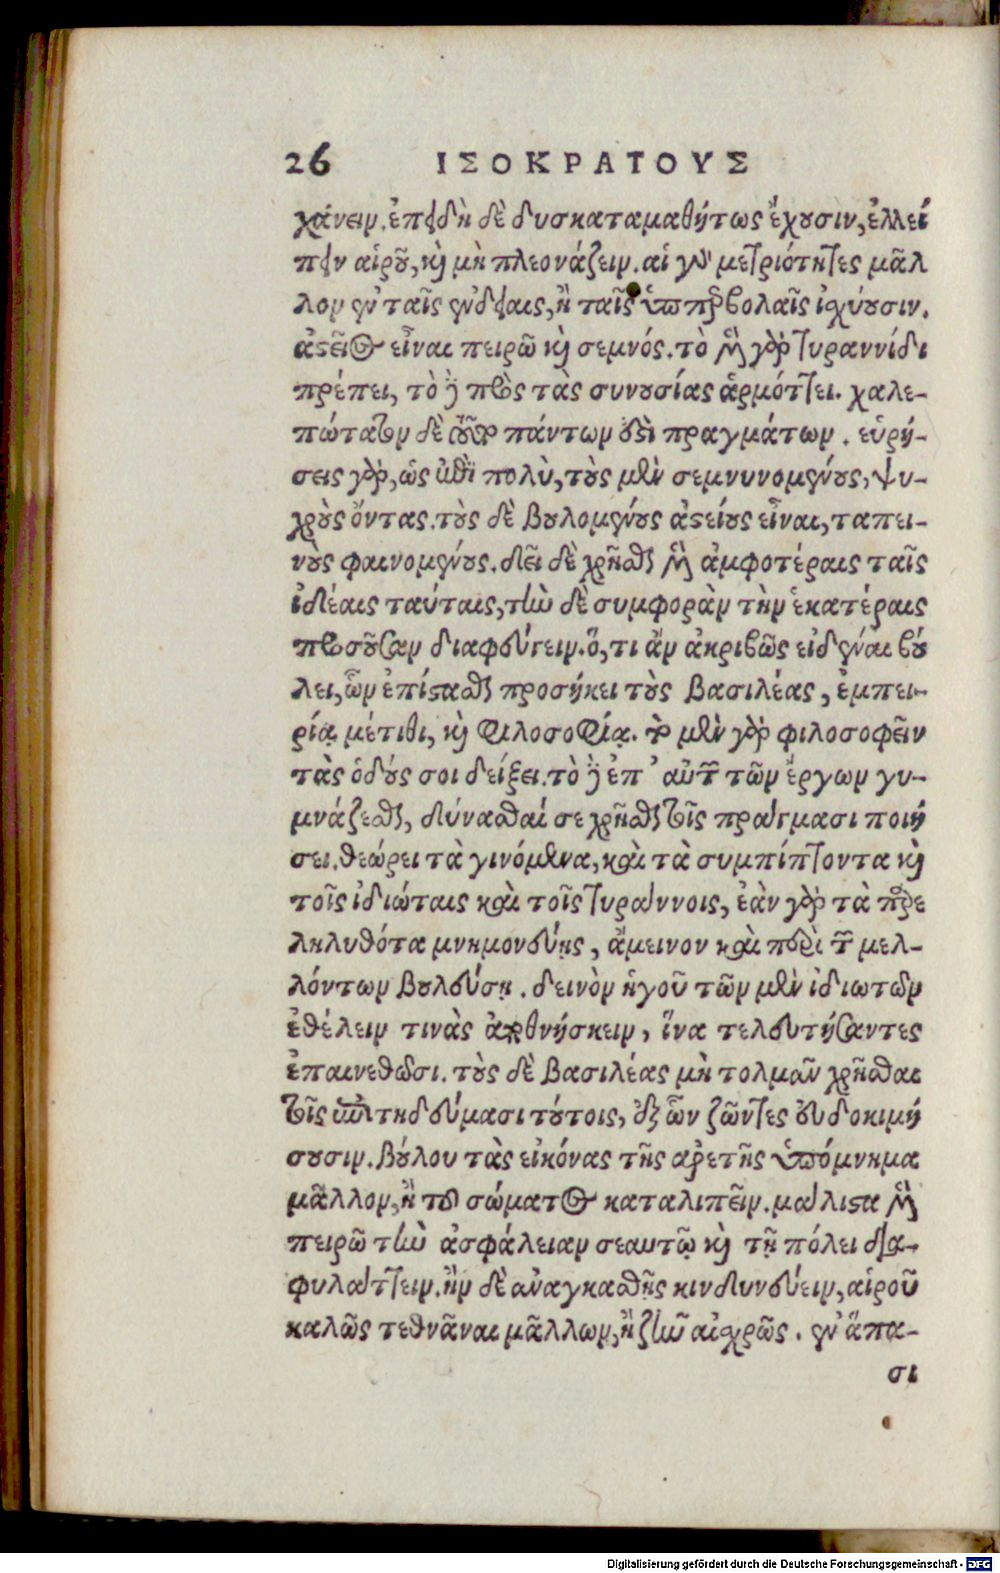 26 ΙΣΟΚΡΑΤΟΥΣ
χάνειν. ἐπειδὴ δὲ δυσκαταμαθήτως ἔχουσιν, ἐλλεί
πειν αἱροῦ, καὶ μὴ πλεονάζειν. αἱ γὰρ μετριότητες μᾶλ
λον ἐν ταῖς ἐνδείαις, ἢ ταῖς ὑπερβολαῖς ἰσχύουσιν.
ἀστεῖος εἶναι πειρῶ καὶ σεμνός. τὸ μὲν γὰρ τυραννίδι
πρέπει, τὸ δὲ πρὸς τὰς συνουσίας ἁρμόττει. χαλε-
πώτατον δὲ τοῦτο πάντων ἐστὶ πραγμάτων. εὑρή-
σεις γὰρ, ὡς ἐπὶ πολὺ, τοὺς μὲν σεμνυνομένους, ψυ-
χροὺς ὄντας. τοὺς δὲ βουλομένους ἀστείους εἶναι, ταπει-
νοὺς φαινομένους. δεῖ δὲ χρῆσθαι μὲν ἀμφοτέραις ταῖς
ἰδέαις ταύταις, τὴν δὲ συμφορὰν τὴν ἑκατέραις
προσοῦσαν διαφεύγειν. ὅ, τι ἂν ἀκριβῶς εἰδέναι βού
λει, ὧν ἐπίστασθαι προσήκει τοὺς βασιλέας, ἐμπει-
ρίᾳ μέτιθι, καὶ φιλοσοφίᾳ. τὸ μὲν γὰρ φιλοσοφεῖν
τὰς ὁδούς σοι δείξει. τὸ δὲ ἐπ' αὐτῶν τῶν ἔργων γυ-
μνάζεσθαι, δύνασθαί σε χρῆσθαι τοῖς πράγμασι ποιή
σει. θεώρει τὰ γινόμενα, καὶ τὰ συμπίπτοντα καὶ
τοῖς ἰδιώταις καὶ τοῖς τυράννοις, ἐὰν γὰρ τὰ παρε
ληλυθότα μνημονεύῃς, ἄμεινον καὶ περὶ τῶν μελ-
λόντων βουλεύσῃ. δεινὸν ἡγοῦ τῶν μὲν ἰδιωτῶν
ἐθέλειν τινὰς ἀποθνήσκειν, ἵνα τελευτήσαντες
ἐπαινεθῶσι. τοὺς δὲ βασιλέας μὴ τολμᾶν χρῆσθαι
τοῖς ἐπιτηδεύμασι τούτοις, ἐξ ὧν ζῶντες εὐδοκιμή
σουσιν. βούλου τὰς εἰκόνας τῆς ἀρετῆς ὑπόμνημα
μᾶλλον, ἢ τοῦ σώματος καταλιπεῖν. μάλιστα μὲν
πειρῶ τὴν ἀσφάλειαν σεαυτῷ καὶ τῇ πόλει δια-
φυλάττειν. ἢν δὲ ἀναγκασθῇς κινδυνεύειν, αἱροῦ
καλῶς τεθνᾶναι μᾶλλων, ἢ ζῆν αἰσχρῶς. ἐν ἅπα-
σι
Digitalisierung gefördert durch die Deutsche Forschungsgemeinschaft - DFG